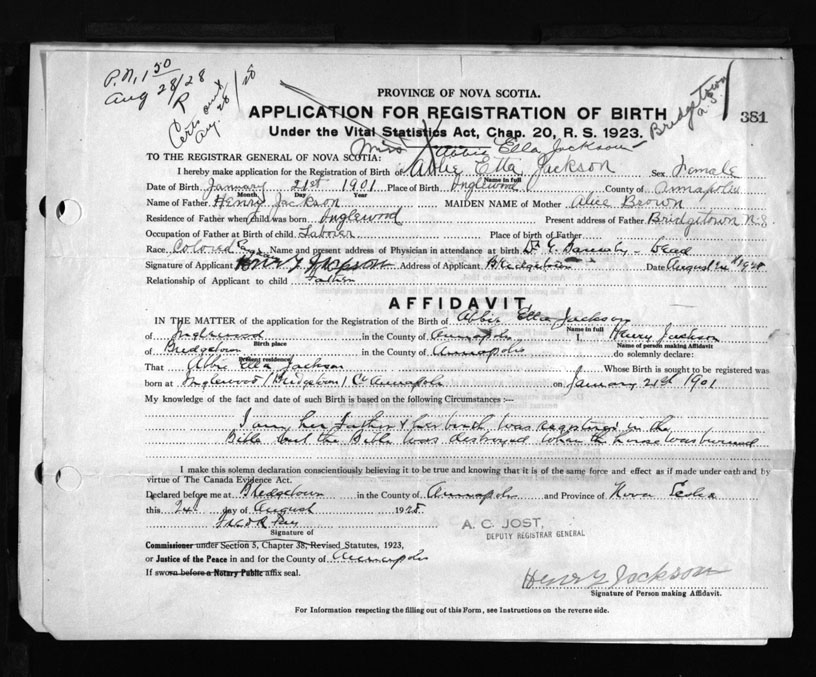 P.N. 1 50
Aug 28/28
R
Certs sent
Aug. 28/28
Bridgetown
N.S.
381
PROVINCE OF NOVA SCOTIA.
APPLICATION FOR REGISTRATION OF BIRTH
Under the Vital Statistics Act, Chap. 20, R. S. 1923.
Miss Abbie Etta Jackson
TO THE REGISTRAR GENERAL OF NOVA SCOTIA:
I hereby make application for the Registration of Birth of Abbie Etta Jackson Sex Female
Name in full
Date of Birth January 21st 1901 Place of Birth Inglewood County of Annapolis
Month Day Year
Name of Father Henry Jackson MAIDEN NAME of Mother Alice Brown
Residence of Father when child was born Inglewood Present address of Father Bridgetown N.S
Occupation of Father at Birth of child Laborer Place of birth of Father
Race Colored Name and present address of Physician in attendance at birth Dr. Dead
Signature of Applicant Henry Jackson Address of Applicant Bridgetown Date August 24th 1928
Relationship of Applicant to child Father
AFFIDAVIT
IN THE MATTER of the application for the Registration of the Birth of Abbie Etta Jackson
Name in full
of Inglewood in the County of Annapolis I, Henry Jackson
Birth place Name of person making Affidavit
of Bridgetown in the County of Annapolis do solemnly declare:
Present residence
That Abbie Etta Jackson Whose Birth is sought to be registered was
born at Inglewood (Bridgetown) Co Annapolis on January 21st 1901
My knowledge of the fact and date of such Birth is based on the following Circumstances :—
I am her Father & her birth was registered in the
Bible but the Bible was destroyed when the house was burned
I make this solemn declaration conscientiously believing it to be true and knowing that it is of the same force and effect as if made under oath and by
virtue of The Canada Evidence Act.
Declared before me at Bridgetown in the County of Annapolis and Province of Nova Scotia
this 24 day of August 1928
Signature of
A. C. JOST,
DEPUTY REGISTRAR GENERAL
Commissioner under Section 5, Chapter 38, Revised Statutes, 1923,
or Justice of the Peace in and for the County of Annapolis
If sworn before a Notary Public affix seal.
Henry Jackson
Signature of Person making Affidavit.
For Information respecting the filling out of this Form, see Instructions on the reverse side.